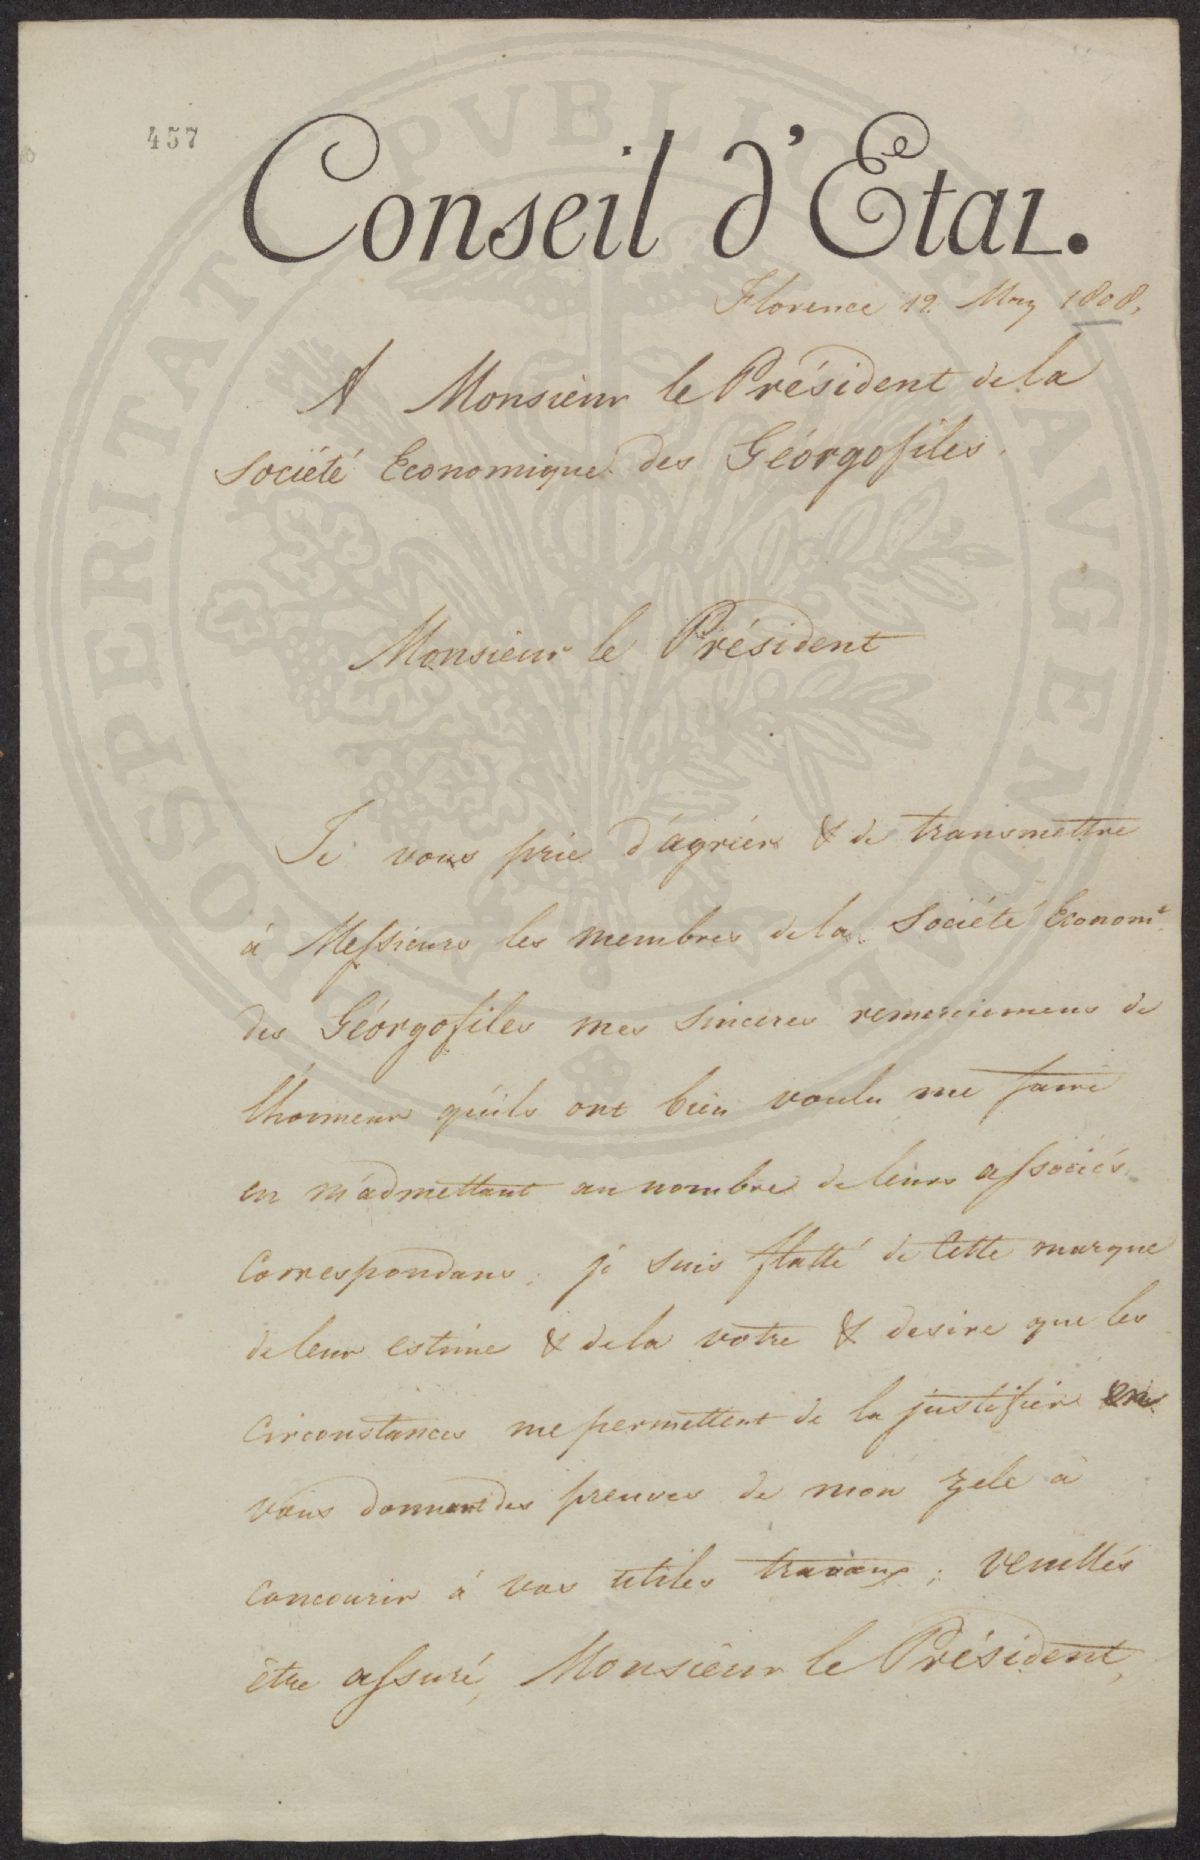 457
Conseil d'Etat.
Florence 12. May 1808.
A Monsieur le Président de la
Société Economique des Géorgofiles.
Monsieur le Président
Je vous prie d'agréer & de transmettre
à Messieurs les membres de la Société Econom.e
des Géorgofiles mes sinceres remerciemens de
l'honneur qu'ils ont bien voulu me faire
en m'admettant au nombre de leurs associés
Correspondans; je suis flatté de Cette marque
de leur estime & de la votre & desire que les
Circonstances me permettent de la justifier en
vous donnant des preuves de mon zele à
concourir à vos utiles travaux; veuillés
être assuré, Monsieur le Président,
PROSPERITATI PVBLICAE AVGENDAE